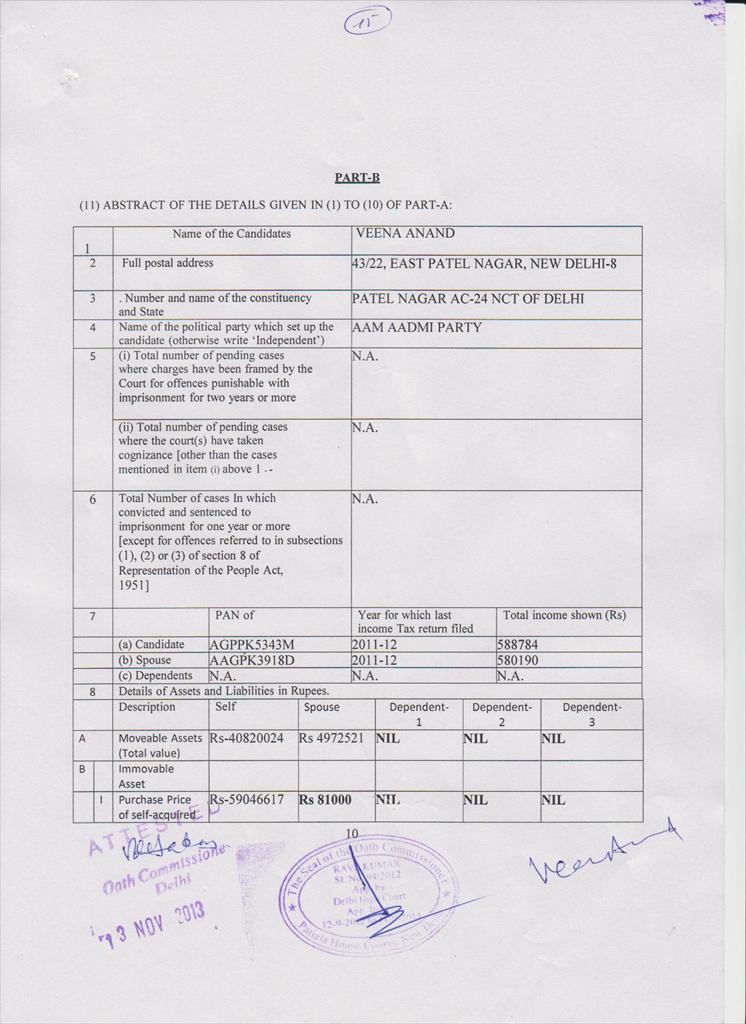 15
PART-B
(11) ABSTRACT OF THE DETAILS GIVEN IN (1) TO (10) OF PART-A:
1 Name of the Candidates VEENA ANAND
2 Full postal address 43/22, EAST PATEL NAGAR, NEW DELHI-8
3 . Number and name of the constituency PATEL NAGAR AC-24 NCT OF DELHI
and State
4 Name of the political party which set up the AAM AADMI PARTY
candidate (otherwise write ‘Independent’)
5 (i) Total number of pending cases N.A.
where charges have been framed by the
Court for offences punishable with
imprisonment for two years or more
(ii) Total number of pending cases N.A.
where the court(s) have taken
cognizance [other than the cases
mentioned in item (i) above 1 .-
6 Total Number of cases In which N.A.
convicted and sentenced to
imprisonment for one year or more
[except for offences referred to in subsections
(1), (2) or (3) of section 8 of
Representation of the People Act,
1951]
7 PAN of Year for which last Total income shown (Rs)
income Tax return filed
(a) Candidate AGPPK5343M 2011-12 588784
(b) Spouse AAGPK3918D 2011-12 580190
(c) Dependents N.A. N.A. N.A.
8 Details of Assets and Liabilities in Rupees.
Description Self Spouse Dependent- Dependent- Dependent-
1 2 3
A Moveable Assets Rs-40820024 Rs 4972521 NIL NIL NIL
(Total value)
B Immovable
Asset
I Purchase Price Rs-59046617 Rs 81000 NIL NIL NIL
of self-acquired
10
ATTESTED
Oath Commissione
Delhi
13 NOV 2013
The Seal of the Oath Commissioner
RAVI KUMAR
Delhi High Court
Patiala House Courts, New De
Veena Anand